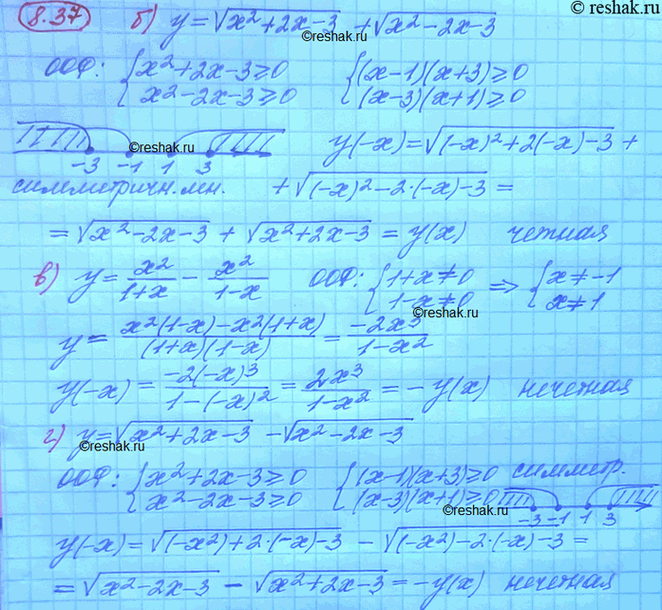 © reshak.ru
8.37 б) y = √(x² + 2x - 3) + √(x² - 2x - 3)
ООФ: { x² + 2x - 3 ≥ 0 { (x - 1)(x + 3) ≥ 0
x² - 2x - 3 ≥ 0 (x - 3)(x + 1) ≥ 0
©reshak.ru
-3 -1 1 3 y(-x) = √((-x)² + 2(-x) - 3) +
симметричн. мн. + √((-x)² - 2·(-x) - 3) =
= √(x² - 2x - 3) + √(x² + 2x - 3) = y(x) четная
в) y = x²/(1+x) - x²/(1-x) ООФ: { 1 + x ≠ 0 ⇒ { x ≠ -1
1 - x ≠ 0 x ≠ 1
©reshak.ru
y = (x²(1-x) - x²(1+x))/((1+x)(1-x)) = -2x³/(1-x²)
y(-x) = -2(-x)³/(1-(-x)²) = 2x³/(1-x²) = -y(x) нечетная
г) y = √(x² + 2x - 3) - √(x² - 2x - 3)
©reshak.ru
ООФ: { x² + 2x - 3 ≥ 0 { (x - 1)(x + 3) ≥ 0 симметр.
x² - 2x - 3 ≥ 0 (x - 3)(x + 1) ≥ 0
-3 -1 1 3
©reshak.ru
y(-x) = √((-x²) + 2·(-x) - 3) - √((-x²) - 2·(-x) - 3) =
= √(x² - 2x - 3) - √(x² + 2x - 3) = -y(x) нечетная